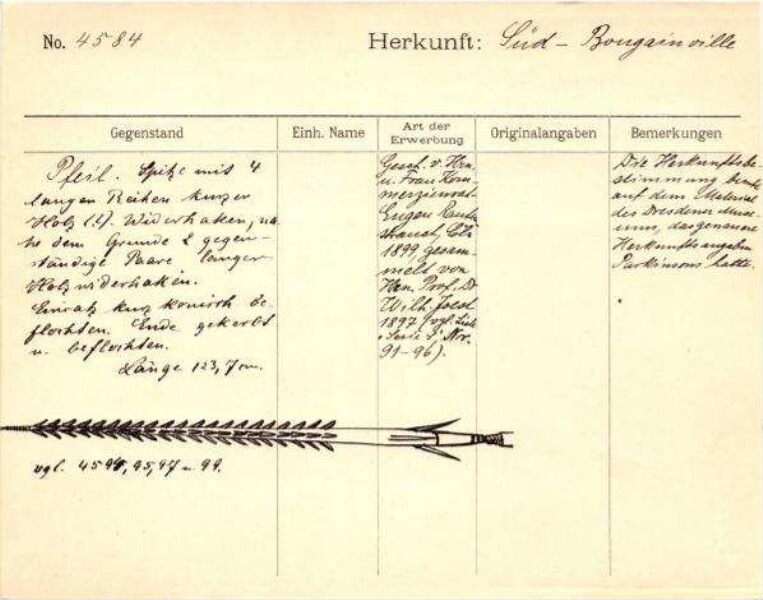 No. 4584
Herkunft: Süd - Bougainville
Gegenstand
Einh. Name
Art der
Erwerbung
Originalangaben
Bemerkungen
Pfeil. Spitze mit 4
langen Reihen kurzer
Holz (?) Widerhaken, na-
he dem Grunde 2 gegen-
ständige Paare langer
Holzwiderhaken.
Einsatz kurz konisch be-
flochten. Ende gekerbt
u. beflochten.
Länge 123,7 cm.
Gesch. v. Hrn.
u. Frau Kom-
merzienrat
Eugen Rauten-
strauch, Cöln
1899, gesam-
melt von
Hrn. Prof. Dr.
Wilh. Joest
1897 (vgl. Liste
Serie S, Nrn.
91-96).
Die Herkunftsbe-
stimmung beruht
auf dem Material
des Dresdener Muse-
ums, das genauere
Herkunftsangaben
Parkinsons hatte.
vgl. 4594, 95, 97 u. 99.